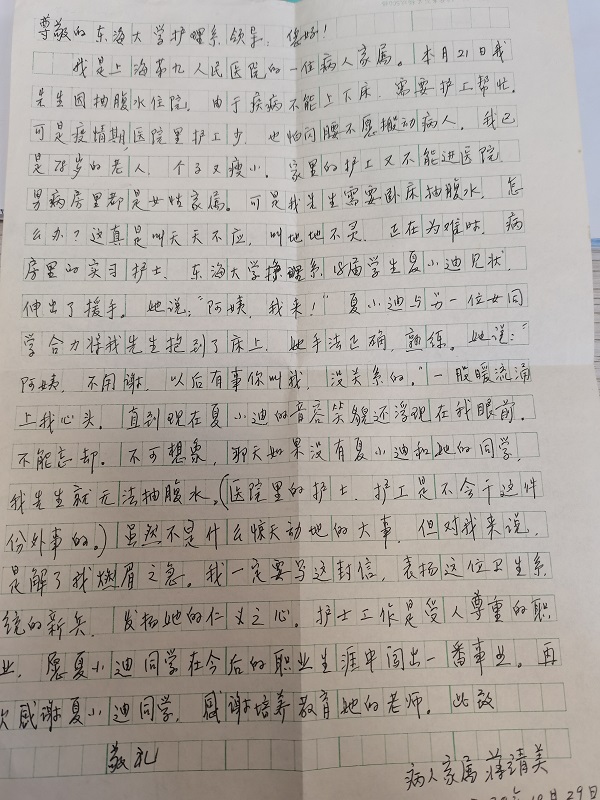 尊敬的东海大学护理系领导：您好！
我是上海第九人民医院的一位病人家属。本月21日我
先生因抽腹水住院，由于疾病不能上下床，需要护工帮忙。
可是疫情期，医院里护工少，也怕闪腰不愿搬动病人。我已
是78岁的老人，个子又瘦小。家里的护工又不能进医院
男病房里都是女性家属。可是我先生需要卧床抽腹水，怎
么办？这真是叫天天不应，叫地地不灵，正在为难时，病
房里的实习护士，东海大学护理系18届学生夏小迪见状，
伸出了援手。她说：“阿姨，我来！”夏小迪与另一位女同
学合力将我先生抱到了床上，她手法正确，熟练。她说：“
阿姨，不用谢，以后有事你叫我，没关系的。”一股暖流涌
上我心头。直到现在夏小迪的音容笑貌还浮现在我眼前。
不能忘却。不可想象，那天如果没有夏小迪和她的同学，
我先生就无法抽腹水。（医院里的护士、护工是不会干这件
份外事的。）虽然不是什么惊天动地的大事，但对我来说，
是解了我燃眉之急。我一定要写这封信，表扬这位卫生系
统的新兵，发扬她的仁义之心。护士工作是受人尊重的职
业，愿夏小迪同学在今后的职业生涯中闯出一番事业。再
次感谢夏小迪同学，感谢培养教育她的老师。此致
敬礼
病人家属 蒋靖美
月29日